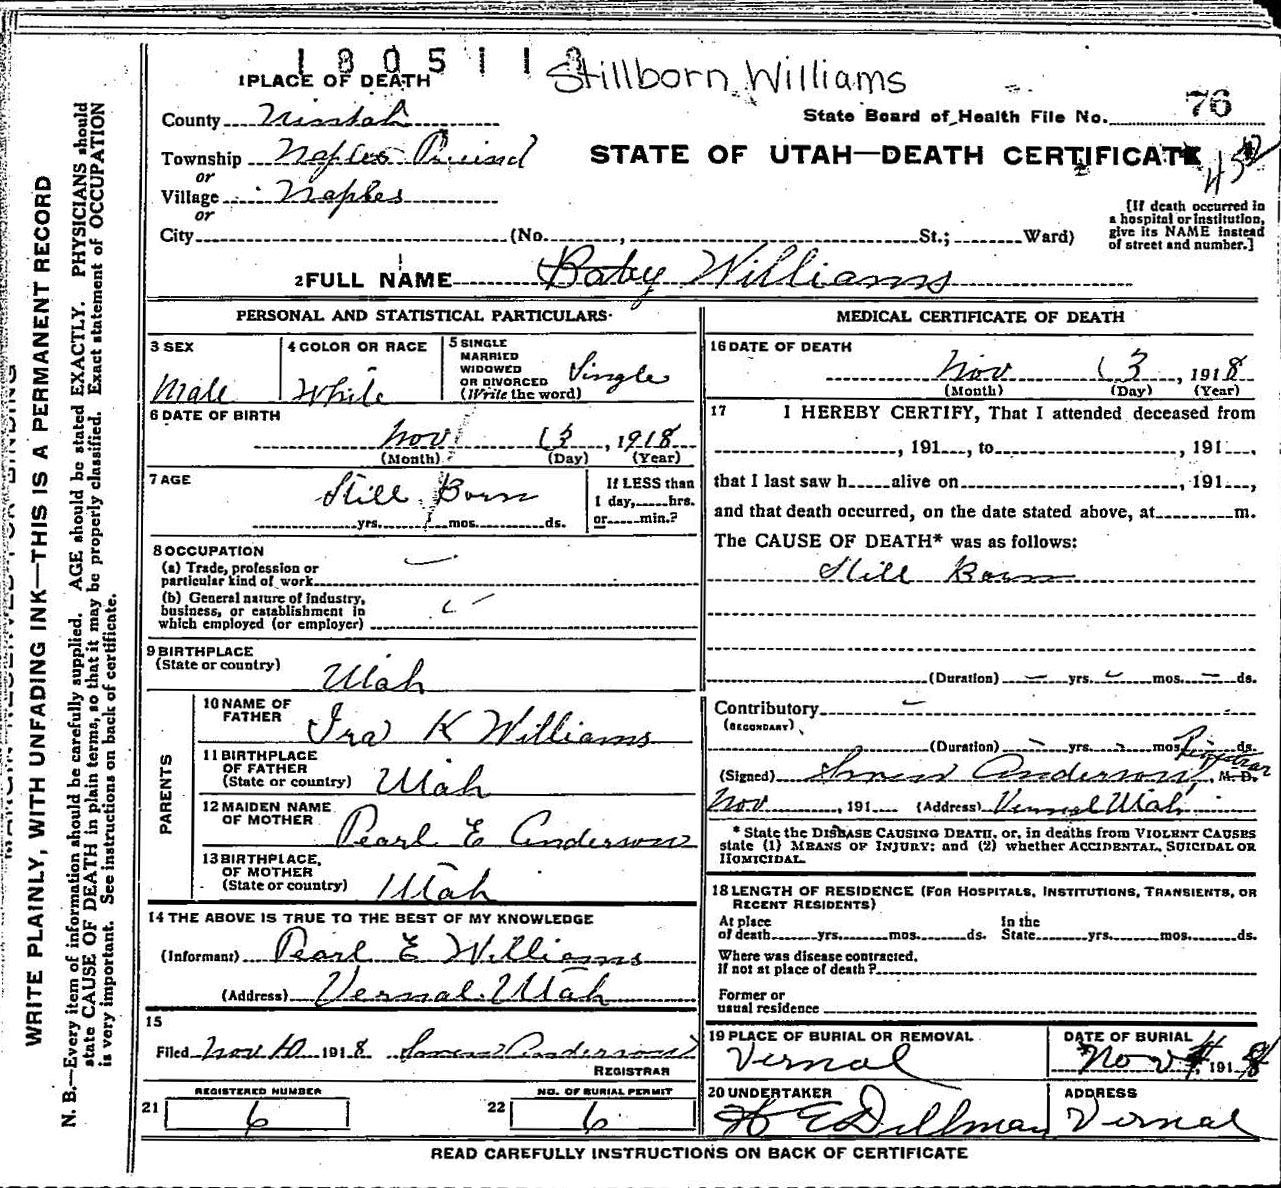 1805113
Stillborn Williams
1 PLACE OF DEATH
State Board of Health File No. 76
County Uintah
Township Naples
STATE OF UTAH—DEATH CERTIFICATE
or
Village Naples
or
City (No. , St.; Ward)
[If death occurred in
a hospital or institution,
give its NAME instead
of street and number.]
2 FULL NAME Baby Williams
PERSONAL AND STATISTICAL PARTICULARS
3 SEX
Male
4 COLOR OR RACE
White
5 SINGLE
MARRIED
WIDOWED
OR DIVORCED
(Write the word)
Single
6 DATE OF BIRTH
Nov 13, 1918
(Month) (Day) (Year)
7 AGE
Still Born
yrs. mos. ds.
If LESS than
1 day, hrs.
or min.?
8 OCCUPATION
(a) Trade, profession or
particular kind of work
(b) General nature of industry,
business, or establishment in
which employed (or employer)
9 BIRTHPLACE
(State or country)
Utah
PARENTS
10 NAME OF
FATHER
Ira K Williams
11 BIRTHPLACE
OF FATHER
(State or country) Utah
12 MAIDEN NAME
OF MOTHER
Pearl E Anderson
13 BIRTHPLACE,
OF MOTHER
(State or country) Utah
14 THE ABOVE IS TRUE TO THE BEST OF MY KNOWLEDGE
(Informant) Pearl E Williams
(Address) Vernal Utah
15
Filed Nov 191 8 Anderson
REGISTRAR
REGISTERED NUMBER
21 6
NO. OF BURIAL PERMIT
22 6
MEDICAL CERTIFICATE OF DEATH
16 DATE OF DEATH
Nov 13, 1918
(Month) (Day) (Year)
17 I HEREBY CERTIFY, That I attended deceased from
, 191 , to , 191 ,
that I last saw h alive on , 191 ,
and that death occurred, on the date stated above, at m.
The CAUSE OF DEATH* was as follows:
Still Born
(Duration) yrs. mos. ds.
Contributory
(SECONDARY)
(Duration) yrs. mos. ds.
Registrar
(Signed) Anderson, M. D.
Nov , 191 (Address) Vernal Utah
* State the DISEASE CAUSING DEATH, or, in deaths from VIOLENT CAUSES
state (1) MEANS OF INJURY; and (2) whether ACCIDENTAL, SUICIDAL OR
HOMICIDAL.
18 LENGTH OF RESIDENCE (FOR HOSPITALS, INSTITUTIONS, TRANSIENTS, OR
RECENT RESIDENTS)
At place
of death yrs. mos. ds.
In the
State yrs. mos. ds.
Where was disease contracted,
If not at place of death?
Former or
usual residence
19 PLACE OF BURIAL OR REMOVAL
Vernal
DATE OF BURIAL
Nov 191 8
20 UNDERTAKER
H E Dillman
ADDRESS
Vernal
READ CAREFULLY INSTRUCTIONS ON BACK OF CERTIFICATE
WRITE PLAINLY, WITH UNFADING INK—THIS IS A PERMANENT RECORD
N. B.—Every item of information should be carefully supplied. AGE should be stated EXACTLY. PHYSICIANS should
state CAUSE OF DEATH in plain terms, so that it may be properly classified. Exact statement of OCCUPATION
is very important. See instructions on back of certificate.